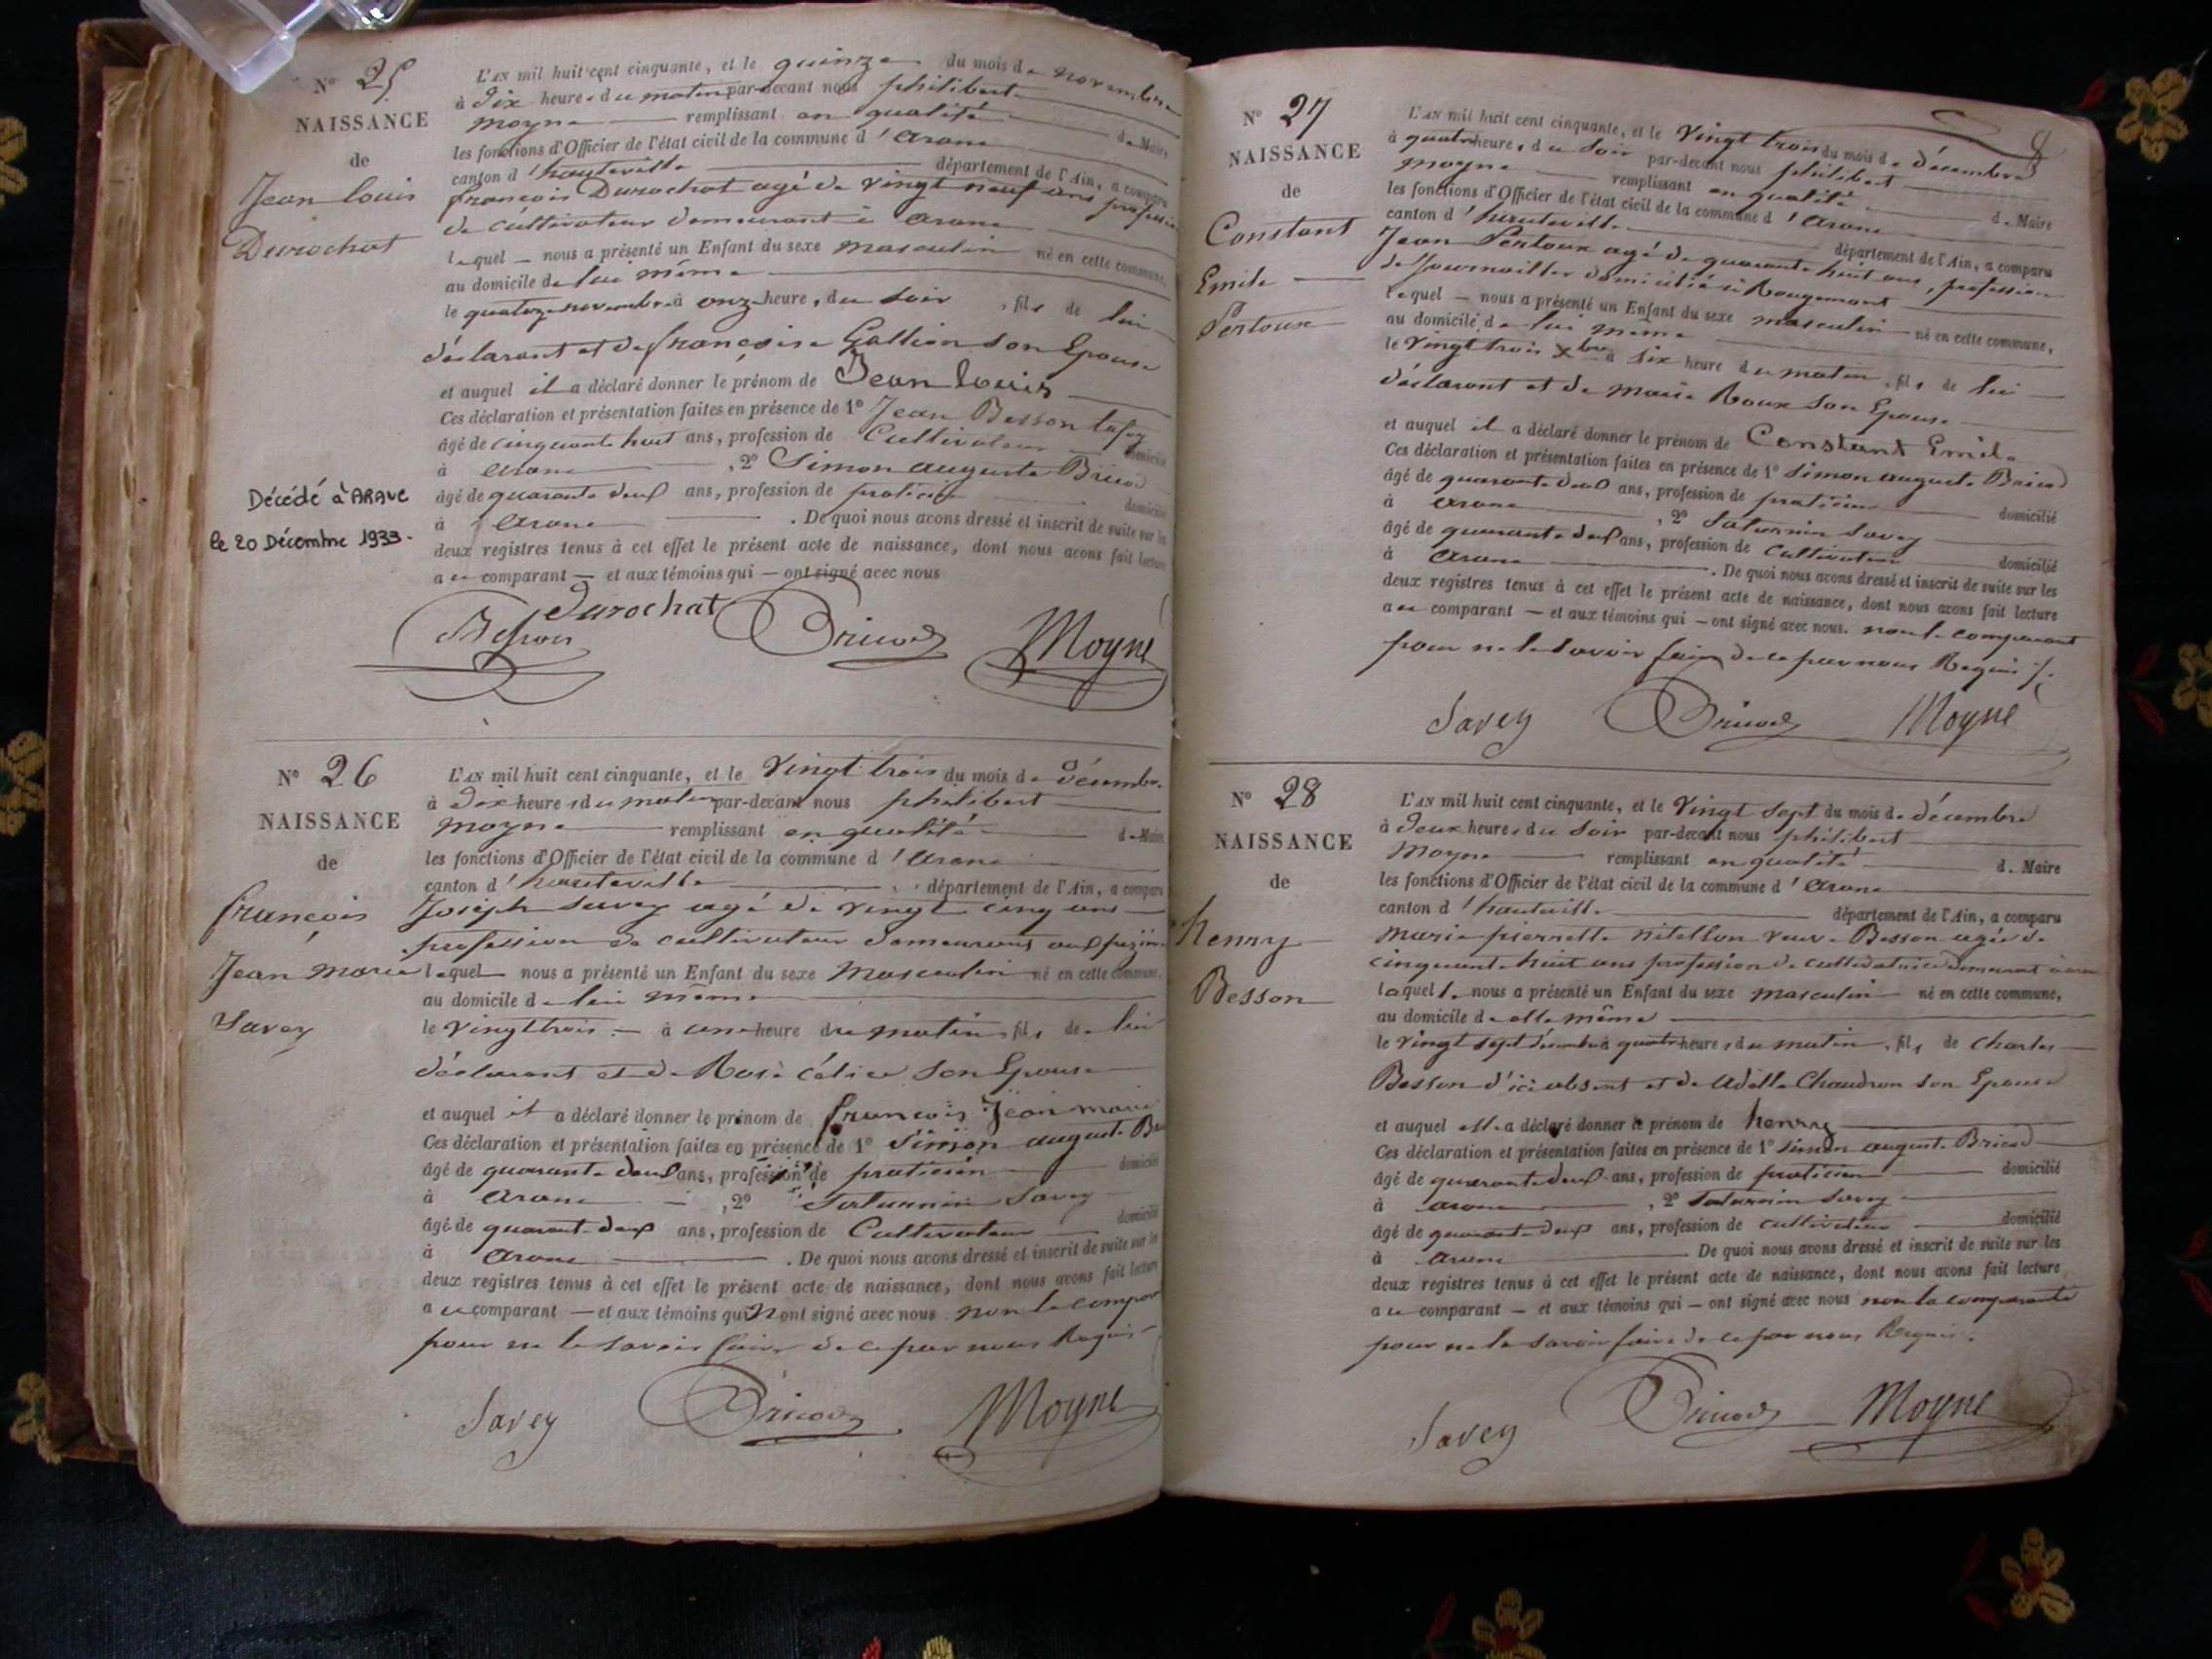 N° 25
NAISSANCE
de
Jean louis
Durochat
Décédé à ARANC
le 20 Décembre 1933.
L'AN mil huit cent cinquante, et le quinze du mois de novembre
à dix heures du matin par-devant nous philibert
moyne remplissant en qualité de Maire
les fonctions d'Officier de l'état civil de la commune d'aranc
canton d'hauteville département de l'Ain, a comparu
françois Durochat agé de vingt neuf ans profession
de cultivateur demeurant à aranc
lequel nous a présenté un Enfant du sexe masculin né en cette commune,
au domicile de lui même
le quatorze novembre à onze heures du soir, fils de lui
déclarant et de françoise Gallion son Epouse
et auquel il a déclaré donner le prénom de Jean louis
Ces déclaration et présentation faites en présence de 1° Jean Besson
âgé de cinquante huit ans, profession de Cultivateur domicilié
à aranc, 2° Simon auguste Bricod
âgé de quarante deux ans, profession de praticien domicilié
à aranc. De quoi nous avons dressé et inscrit de suite sur les
deux registres tenus à cet effet le présent acte de naissance, dont nous avons fait lecture
au comparant — et aux témoins qui — ont signé avec nous
Durochat
Besson Bricod Moyne
N° 26
NAISSANCE
de
françois
Jean marie
Savey
L'AN mil huit cent cinquante, et le vingt trois du mois de décembre
à dix heures du matin par-devant nous philibert
moyne remplissant en qualité de Maire
les fonctions d'Officier de l'état civil de la commune d'aranc
canton d'hauteville département de l'Ain, a comparu
Joseph Savey agé de vingt cinq ans
profession de cultivateur demeurant
lequel nous a présenté un Enfant du sexe masculin né en cette commune,
au domicile de lui même
le vingt trois — à une heure du matin, fils de lui
déclarant et de son Epouse
et auquel il a déclaré donner le prénom de françois Jean marie
Ces déclaration et présentation faites en présence de 1° Simon auguste
âgé de quarante deux ans, profession de praticien domicilié
à aranc, 2° Saturnin Savey
âgé de quarante deux ans, profession de Cultivateur domicilié
à aranc. De quoi nous avons dressé et inscrit de suite sur les
deux registres tenus à cet effet le présent acte de naissance, dont nous avons fait lecture
au comparant — et aux témoins qui ont signé avec nous non le
pour ne le savoir faire de ce par nous Requis
Savey Bricod Moyne
N° 27
NAISSANCE
de
Constant
Emile
Pertoux
L'AN mil huit cent cinquante, et le vingt trois du mois de décembre
à quatre heures du soir par-devant nous philibert
moyne remplissant en qualité de Maire
les fonctions d'Officier de l'état civil de la commune d'aranc
canton d'hauteville département de l'Ain, a comparu
Jean Pertoux agé de quarante huit ans, profession
de Journailler domicilié à Rougemont
lequel — nous a présenté un Enfant du sexe masculin né en cette commune,
au domicile de lui même
le vingt trois Xbre à six heure du matin, fils de lui
déclarant et de marie Roux son Epouse
et auquel il a déclaré donner le prénom de Constant Emile
Ces déclaration et présentation faites en présence de 1° Simon auguste Bricod
âgé de quarante deux ans, profession de praticien domicilié
à aranc, 2° Saturnin Savey
âgé de quarante deux ans, profession de Cultivateur domicilié
à aranc. De quoi nous avons dressé et inscrit de suite sur les
deux registres tenus à cet effet le présent acte de naissance, dont nous avons fait lecture
au comparant — et aux témoins qui — ont signé avec nous. non le comparant
pour ne le savoir faire de ce par nous Requis
Savey Bricod Moyne
N° 28
NAISSANCE
de
henry
Besson
L'AN mil huit cent cinquante, et le vingt sept du mois de décembre
à deux heures du soir par-devant nous philibert
Moyne remplissant en qualité de Maire
les fonctions d'Officier de l'état civil de la commune d'aranc
canton d'hauteville département de l'Ain, a comparu
marie pierrette veuve Besson agée de
cinquante huit ans profession de cultivatrice demeurant à
laquelle nous a présenté un Enfant du sexe masculin né en cette commune,
au domicile de elle même
le vingt sept décembre à quatre heures du matin, fils de Charles
Besson d'ici absent et de Adelle Chaudron son Epouse
et auquel elle a déclaré donner le prénom de henry
Ces déclaration et présentation faites en présence de 1° Simon auguste Bricod
âgé de quarante deux ans, profession de praticien domicilié
à aranc, 2° Saturnin Savey
âgé de quarante deux ans, profession de cultivateur domicilié
à aranc De quoi nous avons dressé et inscrit de suite sur les
deux registres tenus à cet effet le présent acte de naissance, dont nous avons fait lecture
au comparant — et aux témoins qui — ont signé avec nous non la comparante
pour ne le savoir faire de ce par nous Requis.
Savey Bricod Moyne